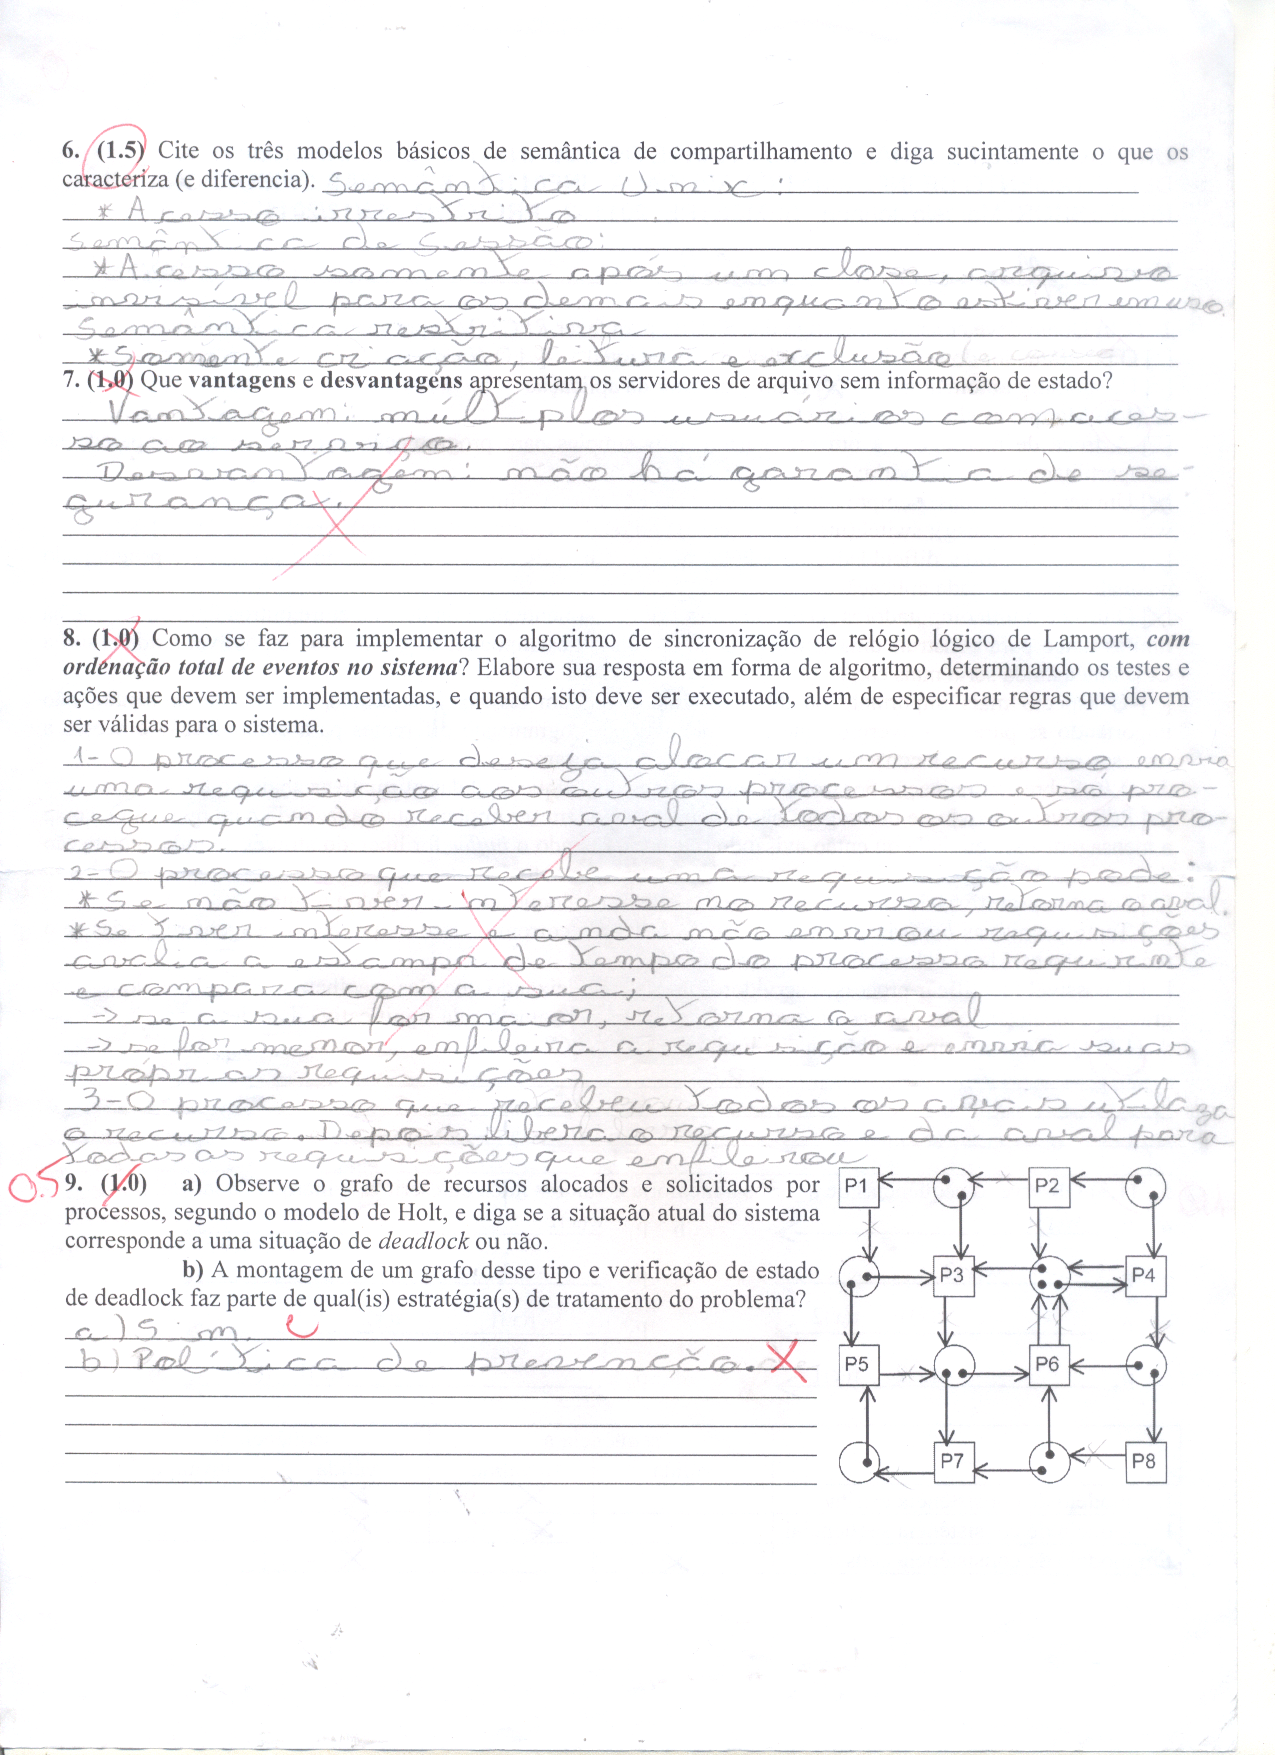 6. (1.5) Cite os três modelos básicos de semântica de compartilhamento e diga sucintamente o que os
caracteriza (e diferencia). Semântica Unix:
* Acesso irrestrito
Semântica de Sessão:
* Acesso somente após um close, arquivo
invisível para os demais enquanto estiver em uso
Semântica restritiva
* Somente criação, leitura e exclusão
7. (1.0) Que vantagens e desvantagens apresentam os servidores de arquivo sem informação de estado?
Vantagem: múltiplos usuários com aces-
so ao serviço.
Desvantagem: não há garantia de se-
gurança.
8. (1.0) Como se faz para implementar o algoritmo de sincronização de relógio lógico de Lamport, com
ordenação total de eventos no sistema? Elabore sua resposta em forma de algoritmo, determinando os testes e
ações que devem ser implementadas, e quando isto deve ser executado, além de especificar regras que devem
ser válidas para o sistema.
1- O processo que deseja alocar um recurso envia
uma requisição aos outros processos e só pro-
cegue quando receber aval de todos os outros pro-
cessos.
2- O processo que recebe uma requisição pode:
* Se não tiver interesse no recurso, retorna o aval.
* Se tiver interesse e ainda não enviou requisições
avalia a estampa de tempo do processo requirinte
e compara com a sua;
-> se a sua for maior, retorna o aval
-> se for menor, enfileira a requisição e envia suas
próprias requisições
3-O processo que recebeu todos os avais utiliza
o recurso. Depois libera o recurso e da aval para
todas as requisições que enfileirou
0.5 9. (1.0) a) Observe o grafo de recursos alocados e solicitados por
processos, segundo o modelo de Holt, e diga se a situação atual do sistema
corresponde a uma situação de deadlock ou não.
b) A montagem de um grafo desse tipo e verificação de estado
de deadlock faz parte de qual(is) estratégia(s) de tratamento do problema?
a) Sim. C
b) Política de prevenção. X
P1 P2
P3 P4
P5 P6
P7 P8